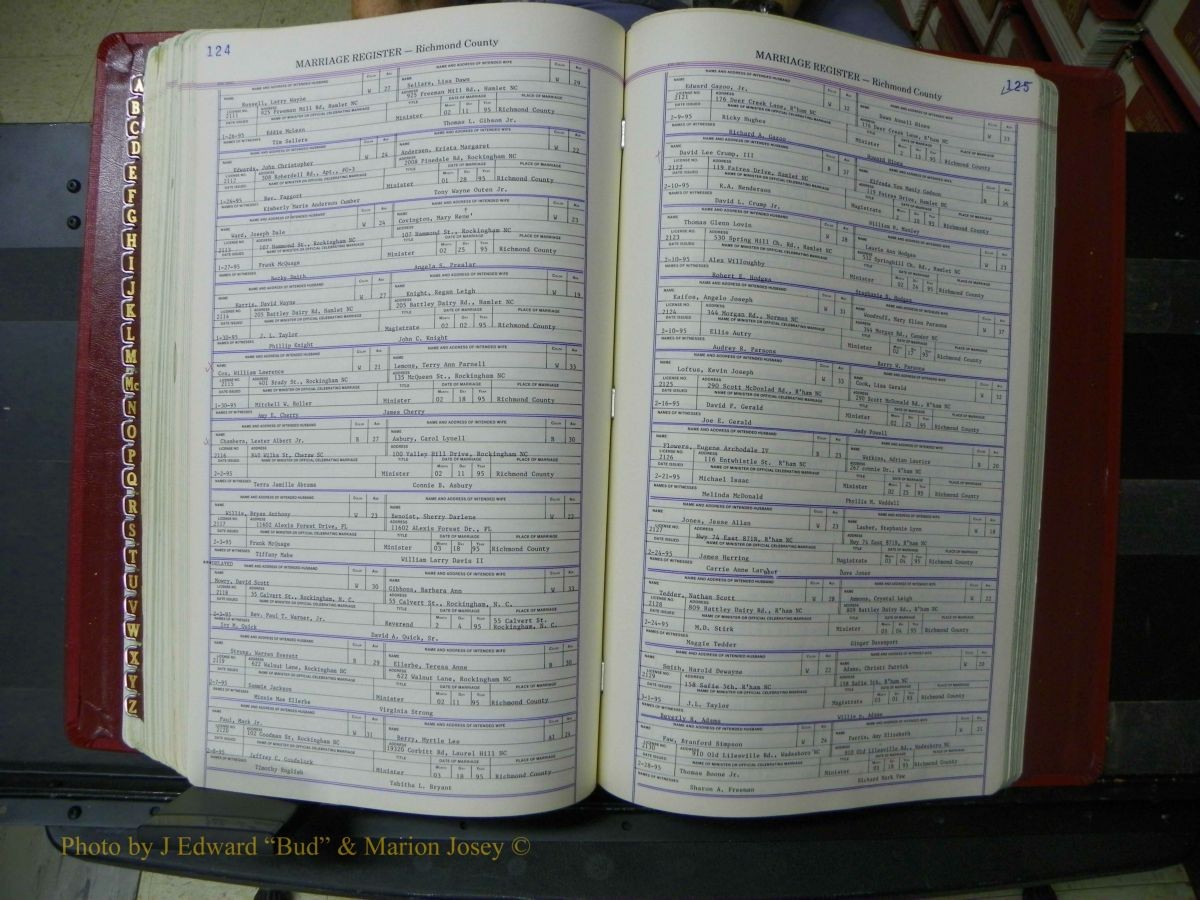 124
MARRIAGE REGISTER — Richmond County
NAME AND ADDRESS OF INTENDED HUSBAND COLOR AGE NAME AND ADDRESS OF INTENDED WIFE COLOR AGE
Russell, Larry Wayne W 27 Sellars, Lisa Dawn W 29
2111 925 Freeman Mill Rd, Hamlet NC 925 Freeman Mill Rd., Hamlet NC
1-26-95 Eddie McLean Minister 02 11 95 Richmond County
Tim Sellers Thomas L. Gibson Jr.
Edwards, John Christopher W 24 Andersen, Krista Margaret W 22
2112 308 Roberdell Rd., Apt., PC-3 2008 Pinedale Rd, Rockingham NC
1-24-95 Rev. Faggart Minister 01 28 95 Richmond County
Kimberly Marie Anderson Comber Tony Wayne Outen Jr.
Ward, Joseph Dale W 24 Covington, Mary Rene' W 23
2113 107 Hammond St., Rockingham NC 107 Hammond St., Rockingham NC
1-27-95 Frank McQuage Minister 02 25 95 Richmond County
Becky Smith Angela S. Presler
Harris, David Wayne W 27 Knight, Regan Leigh W 19
2114 205 Battley Dairy Rd, Hamlet NC 205 Battley Dairy Rd., Hamlet NC
1-30-95 J. L. Taylor Magistrate 02 02 95 Richmond County
Phillip Knight John C. Knight
Cox, William Lawrence W 21 Lemons, Terry Ann Parnell W 33
2115 401 Brady St., Rockingham NC 135 McQueen St., Rockingham NC
1-30-95 Mitchell W. Roller Minister 02 18 95 Richmond County
Amy E. Cherry James Cherry
Chambers, Lester Albert Jr. B 27 Asbury, Carol Lynell B 30
2116 840 Wilks St. Cheraw SC 100 Valley Hill Drive, Rockingham NC
2-2-95 Minister 02 11 95 Richmond County
Terra Jamille Abrams Connie B. Asbury
Willis, Bryan Anthony W 23 Benoist, Sherry Darlene W 22
2117 11602 Alexis Forest Drive, FL 11602 ALexis Forest Dr., FL
2-3-95 Frank McQuage Minister 03 18 95 Richmond County
Tiffany Mabe William Larry Davis II
DELAYED
Mowry, David Scott W 30 Gibbons, Barbara Ann W 33
2118 35 Calvert St., Rockingham, N. C. 55 Calvert St., Rockingham, N. C.
2-3-95 Rev. Paul T. Warner, Jr. Reverend 2 4 95 55 Calvert St. Rockingham, N. C.
Ivy M. Quick David A. Quick, Sr.
Strong, Warren Everett B 29 Ellerbe, Teresa Anne B 30
2119 622 Walnut Lane, Rockingham NC 622 Walnut Lane, Rockingham NC
2-7-95 Sammie Jackson Minister 02 11 95 Richmond County
Minnie Mae Ellerbe Virginia Strong
Paul, Mack Jr. W 31 Berry, Myrtle Lee AI 24
2120 102 Goodman St, Rockingham NC 19320 Corbitt Rd, Laurel Hill NC
2-8-95 Jeffrey C. Goudelock Minister 03 18 95 Richmond County
Timothy English Tabitha L. Bryant
A
B
C
D
E
F
G
H
I
J
K
L
M
Mc
N
O
P
Q
R
S
T
U
V
W
X
Y
Z
125
MARRIAGE REGISTER — Richmond County
NAME AND ADDRESS OF INTENDED HUSBAND COLOR AGE NAME AND ADDRESS OF INTENDED WIFE COLOR AGE
Edward Gazoo, Jr. W 32 Dawn Russell Hines W 33
2121 176 Deer Creek Lane, R'ham NC 176 Deer Creek Lane, R'ham NC
2-9-95 Ricky Hughes Minister 2 13 95 Richmond County
Richard A. Gazoo Howard Hines
David Lee Crump, III B 37 Elfreda Von Manly Gadson B 36
2122 119 Faires Drive, Hamlet NC 119 Faires Drive, Hamlet NC
2-10-95 K.A. Henderson Magistrate Richmond County
David L. Crump Jr. William H. Manley
Thomas Glenn Lovin W 28 Laurie Ann Hodges W 23
2123 530 Spring Hill Ch. Rd., Hamlet NC 532 Springhill Ch. Rd., Hamlet NC
2-10-95 Alex Willoughby Minister 02 26 95 Richmond County
Robert E. Hodges Stephanie B. Hodges
Kaifos, Angelo Joseph W 31 Woodruff, Mary Ellen Parsons W 37
2124 344 Morgan Rd., Norman NC 344 Morgan Rd., Candor NC
2-10-95 Ellie Autry Minister 02 13 95 Richmond County
Audrey R. Parsons Barry W. Parsons
Loftus, Kevin Joseph W 33 Cook, Lisa Gerald W 32
2125 290 Scott McDonlad Rd., R'ham 290 Scott McDonald Rd., R'ham NC
2-16-95 David F. Gerald Minister 02 25 95 Richmond County
Joe E. Gerald Judy Powell
Flowers, Eugene Archodale IV B 23 Watkins, Adrian Laurice B 20
2126 116 Entwhistle St., R'ham NC 267 Connie Dr., R'ham NC
2-21-95 Michael Isaac Minister 02 25 95 Richmond County
Melinda McDonald Phyllis M. Waddell
Jones, Jesse Allan W 23 Lauber, Stephanie Lynn W 18
2127 Hwy 74 East 871B, R'ham NC Hwy 74 East 871B, R'ham NC
2-24-95 James Herring Minister 03 04 95 Richmond County
Carrie Anne Dave Jones
Tedder, Nathan Scott W 28 Ammons, Crystal Leigh W 22
2128 809 Battley Dairy Rd., R'ham NC 809 Battley Dairy Rd., R'ham NC
2-24-95 M.D. Stirk Minister 03 04 95 Richmond County
Maggie Tedder Ginger Davenport
Smith, Harold Dewayne W 22 Adams, Christi Patrick W 20
2129 158 Safie 5th, R'ham NC 158 Safie 5th, R'ham NC
3-1-95 J.L. Taylor Magistrate 03 01 95 Richmond County
Beverly R. Adams Willie D. Adams
Faw, Branford Simpson W 24 Farris, Amy Elizabeth W 21
2130 910 Old Lilesville Rd., Wadesboro NC 910 Old Lilesville Rd., Wadesboro NC
2-28-95 Thomas Boone Jr. Minister 03 18 95 Richmond County
Sharon A. Freeman Richard Mark Faw
Photo by J Edward "Bud" & Marion Josey ©